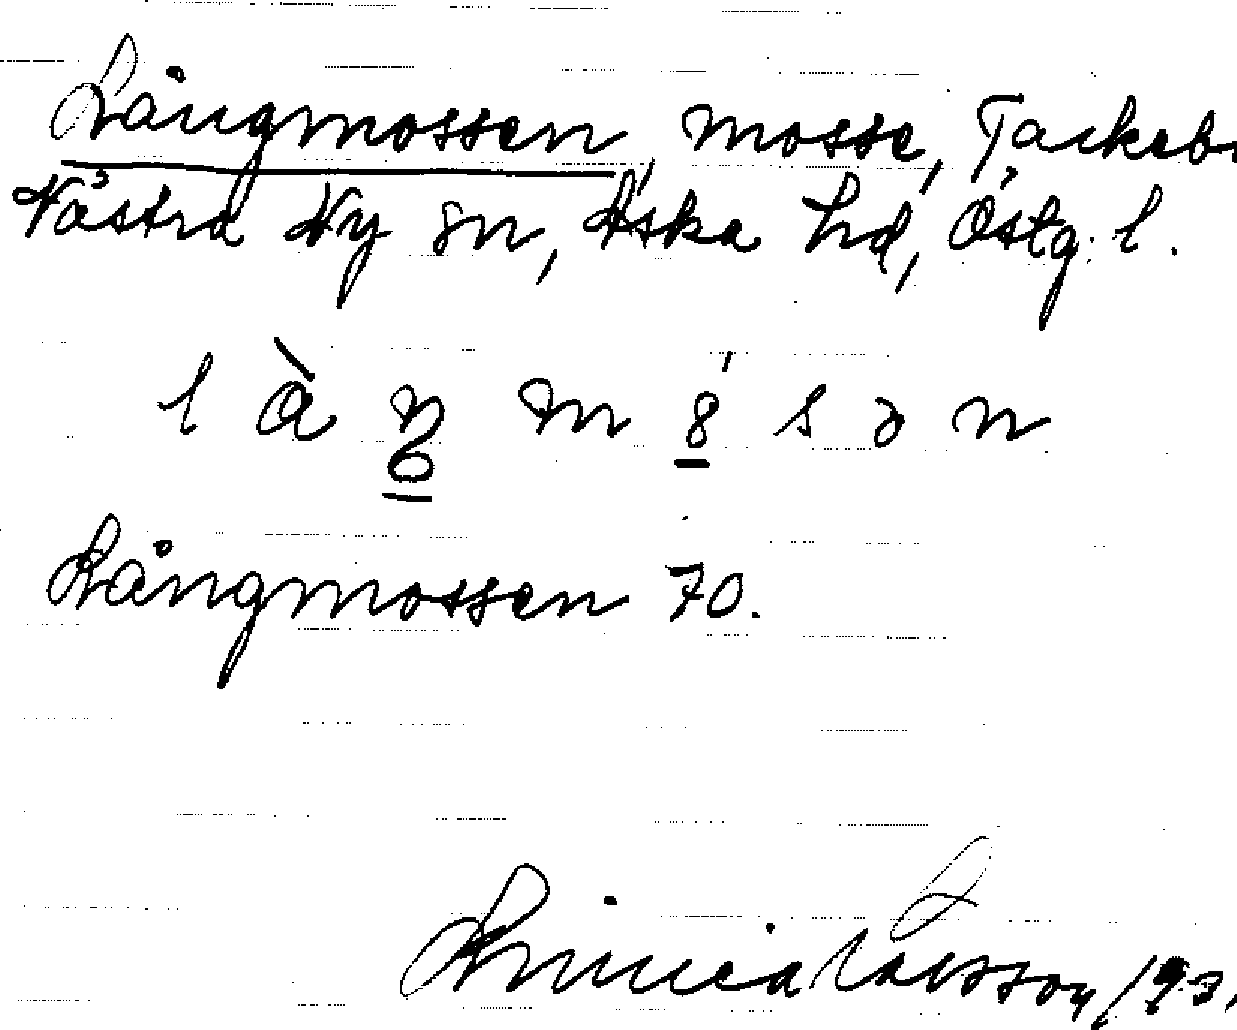 Långmossen, mosse, Tackeb
Västra Ny sn, Aska hd, Östg. l.
l à ŋ m 8́ s ə n
Långmossen 70.
Larsson, 193